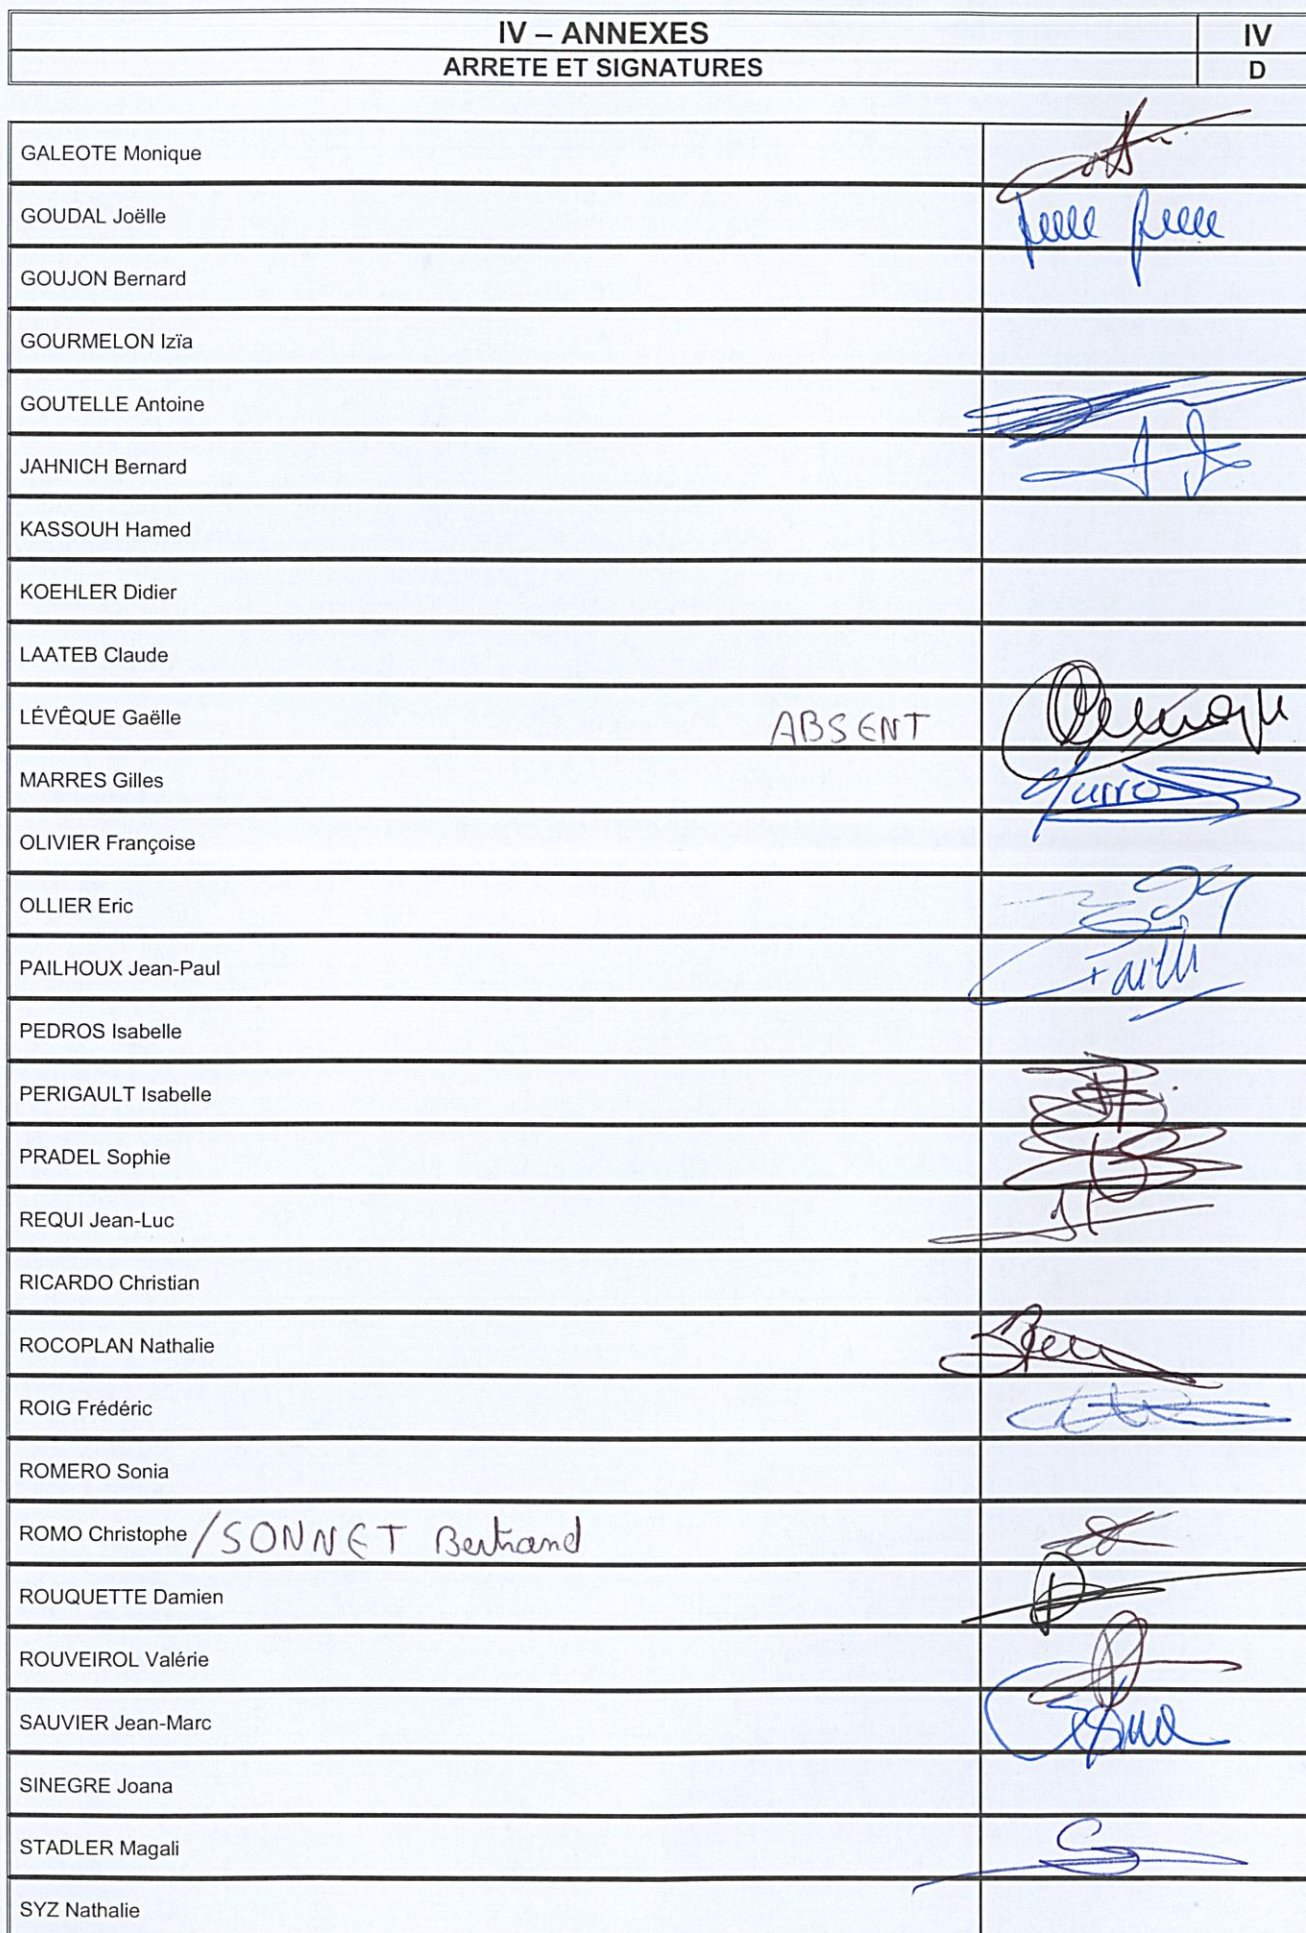 IV – ANNEXES IV
ARRETE ET SIGNATURES D
GALEOTE Monique
GOUDAL Joëlle
GOUJON Bernard
GOURMELON Izïa
GOUTELLE Antoine
JAHNICH Bernard
KASSOUH Hamed
KOEHLER Didier
LAATEB Claude
LÉVÊQUE Gaëlle ABSENT
MARRES Gilles
OLIVIER Françoise
OLLIER Eric
PAILHOUX Jean-Paul
PEDROS Isabelle
PERIGAULT Isabelle
PRADEL Sophie
REQUI Jean-Luc
RICARDO Christian
ROCOPLAN Nathalie
ROIG Frédéric
ROMERO Sonia
ROMO Christophe /SONNET Bertrand
ROUQUETTE Damien
ROUVEIROL Valérie
SAUVIER Jean-Marc
SINEGRE Joana
STADLER Magali
SYZ Nathalie